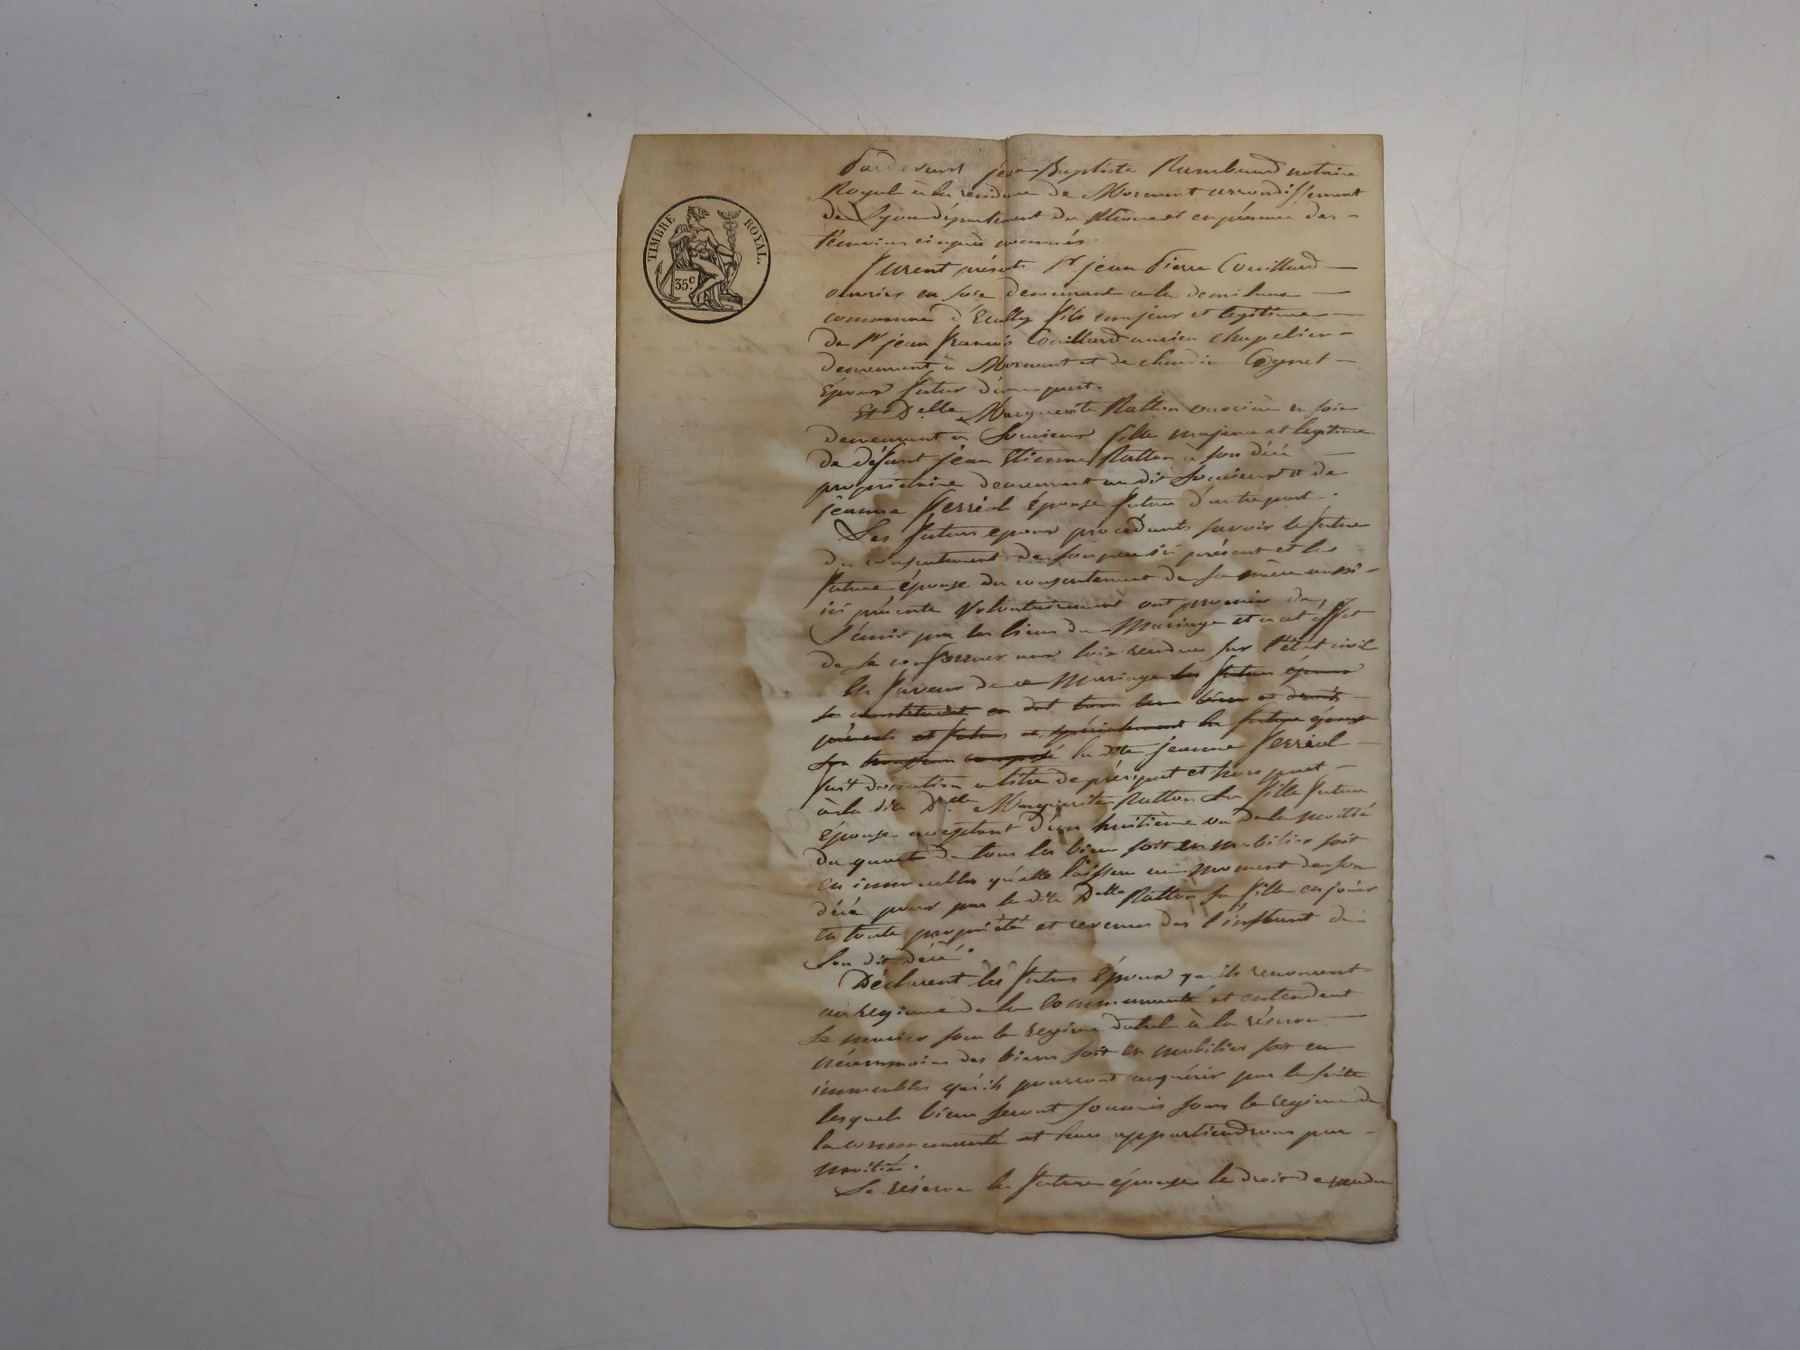 TIMBRE ROYAL.
35c.
Pardevant jean Baptiste Rambaud notaire
Royal à la residence de Mornant arrondissement
de Lyon département du Rhone et en présence des
témoins cinquò nommés.
Furent présents Sr. jean Pierre Couillard
ouvrier en soie demeurant à la demi lune
commune d'Ecully fils majeur et legitime
de Sr jean francois Couillard ancien chapelier
demeurant à Mornant et de claudine
Epoux futur d'une part.
Et Delle Marguerite Ratton ouvrière en soie
demeurant à Soucieux fille majeure et legitime
de défunt jean Etienne Ratton à son décé
propriétaire demeurant au dit Soucieux et de
jeanne Ferréol épouse future d'autre part.
Les futurs epoux procédants savoir le futur
du consentement de son père ici présent et la
future épouse du consentement de sa mère aussi
ici présente volontairement ont promis de
S'unir par les liens du Mariage et à cet effet
de se conformer aux loix rendues sur l'état civil
En faveur de ce Mariage les futurs époux
se constituent en dot tous leurs biens et droits
présents et futurs et spécialement la future épouse
son trousseau composé la dite jeanne Ferréol
fait donation à titre de préciput et hors part
à la dite Delle Marguerite Ratton sa fille future
épouse acceptant d'un huitième ou de la moitié
du quart de tous les biens soit en mobilier soit
en immeubles qu'elle laissera au moment de son
décé pour par la dite Delle Ratton sa fille en jouir
en toute propriété et revenus des l'instant du
Son dit décé.
Déclarent les futurs Epoux qu'ils renoncent
au regime de la Communauté et entendent
se marier sous le regime dotal à la réserve
néanmoins des biens soit en mobilier soit en
immeubles qu'ils pourront acquérir par la suite
lesquels biens seront soumis sous le regime de
la communauté et leurs appartiendrons par
moitié.
Se réserve la future épouse le droit de vendre